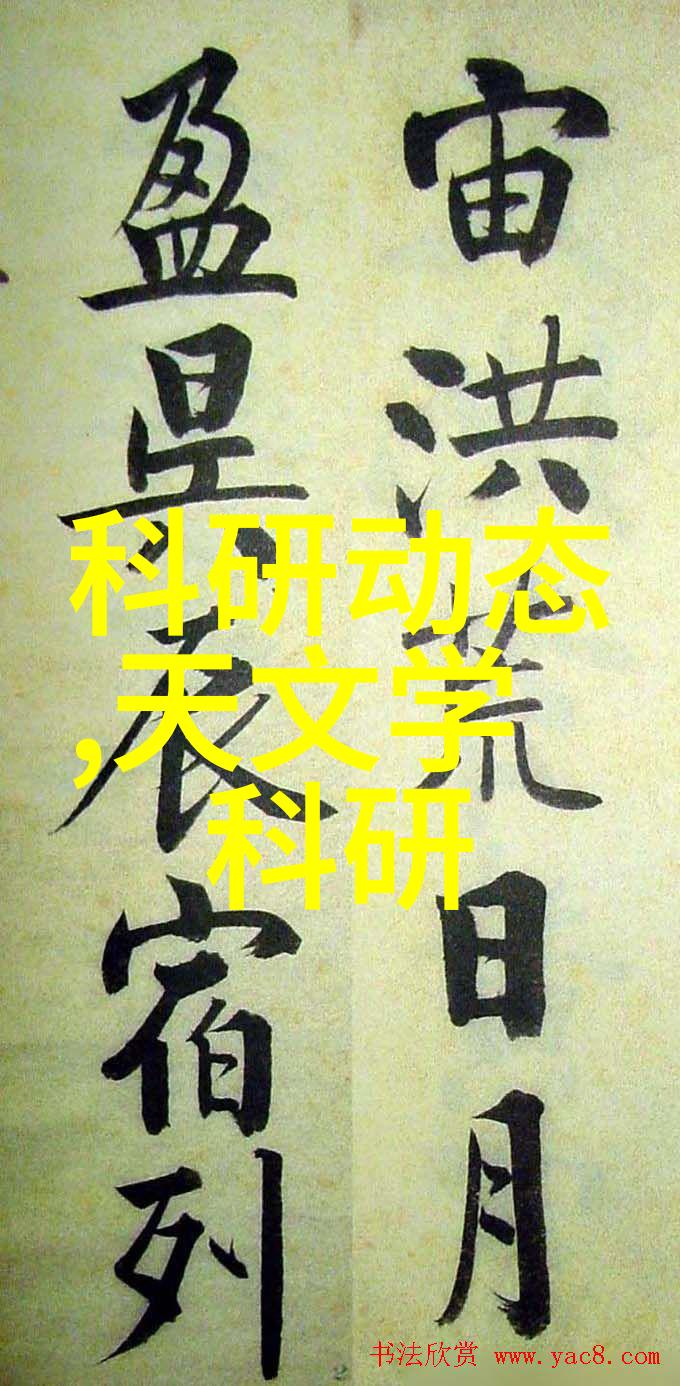 宙洪荒日月
盈昃辰宿列
科研动态
,天文学
科研
书法欣赏 www.yac8.com
2